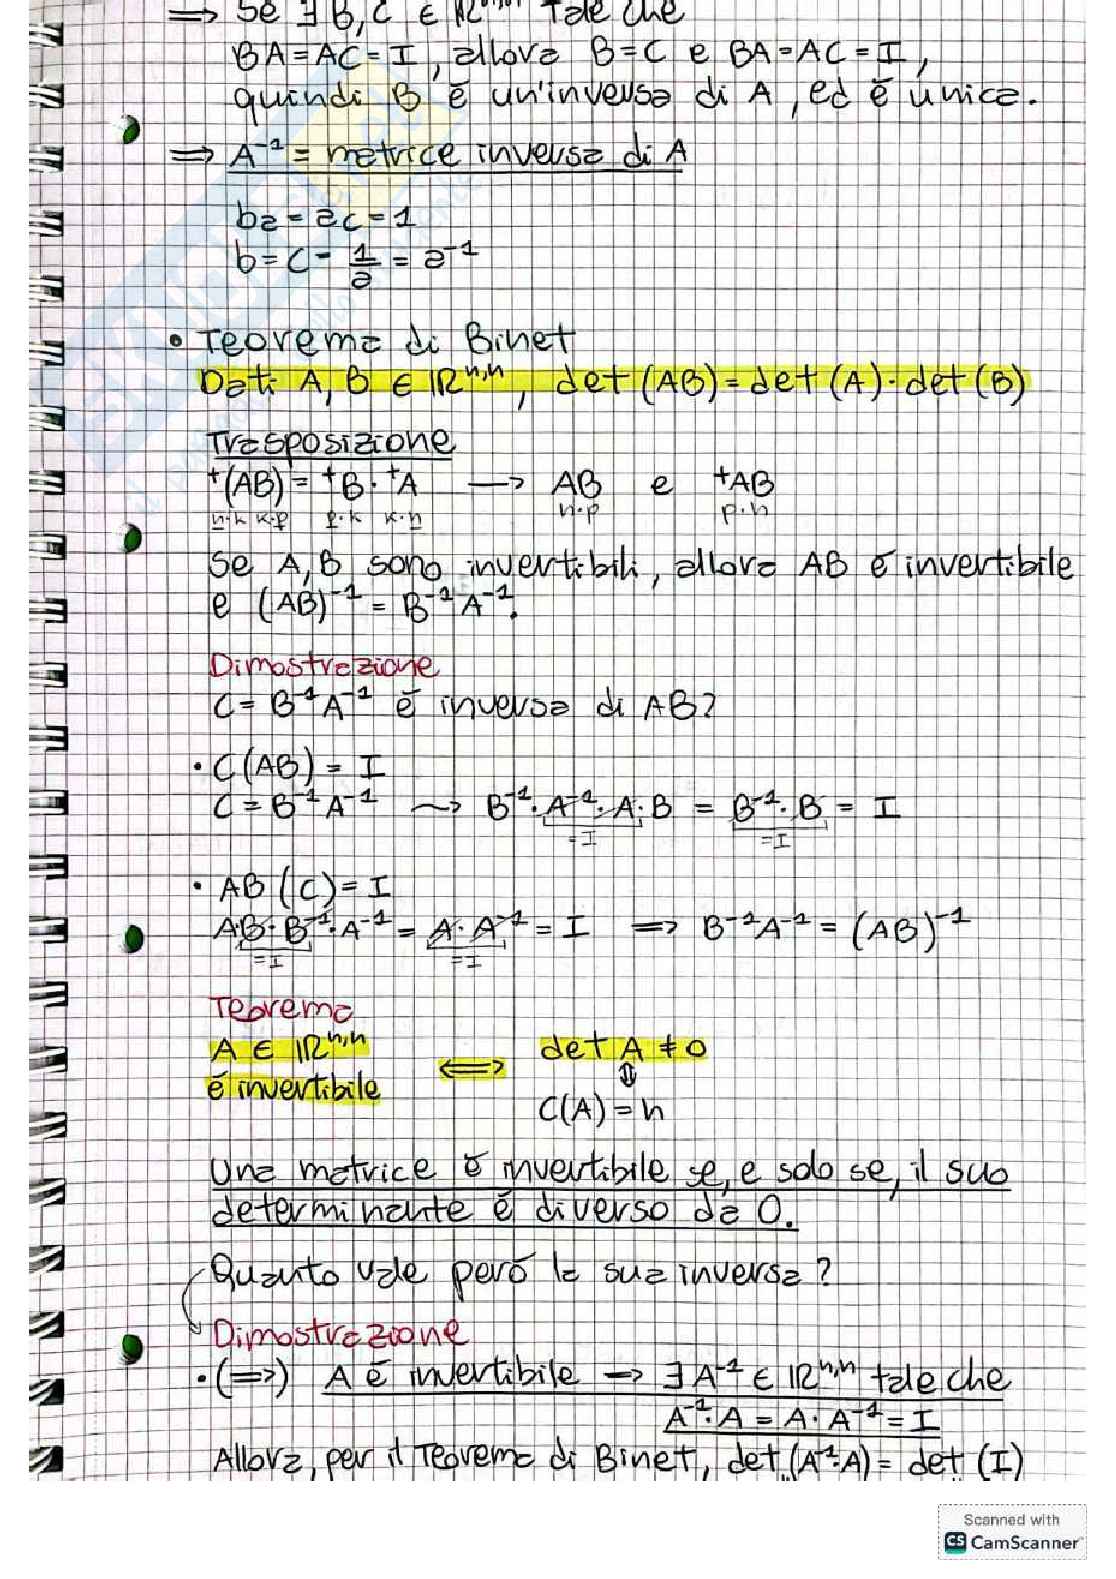 ⇒ Se ∃ B, C ∈ ℝⁿ,ⁿ tale che
BA = AC = I, allora B = C e BA = AC = I,
quindi B è un'inversa di A, ed è unica.
⇒ A⁻¹ = matrice inversa di A
ba = ac = 1
b = c = 1/a = a⁻¹
• Teorema di Binet
Dati A, B ∈ ℝⁿ,ⁿ, det (AB) = det (A) · det (B)
Trasposizione
ᵗ(AB) = ᵗB · ᵗA → AB e ᵗAB
n·k k·p p·k k·n n·p p·n
Se A, B sono invertibili, allora AB è invertibile
e (AB)⁻¹ = B⁻¹A⁻¹.
Dimostrazione
C = B⁻¹A⁻¹ è inversa di AB?
• C(AB) = I
C = B⁻¹A⁻¹ ⇝ B⁻¹ · A⁻¹ · A · B = B⁻¹ · B = I
=I =I
• AB (C) = I
AB · B⁻¹ · A⁻¹ = A · A⁻¹ = I ⇒ B⁻¹A⁻¹ = (AB)⁻¹
=I =I
Teorema
A ∈ ℝⁿ,ⁿ ⟺ det A ≠ 0
è invertibile ⇕
C(A) = n
Una matrice è invertibile se, e solo se, il suo
determinante è diverso da 0.
Quanto vale però la sua inversa?
Dimostrazione
• (⇒) A è invertibile → ∃ A⁻¹ ∈ ℝⁿ,ⁿ tale che
A⁻¹ · A = A · A⁻¹ = I
Allora, per il Teorema di Binet, det (A⁻¹·A) = det (I)
Scanned with
CS CamScanner